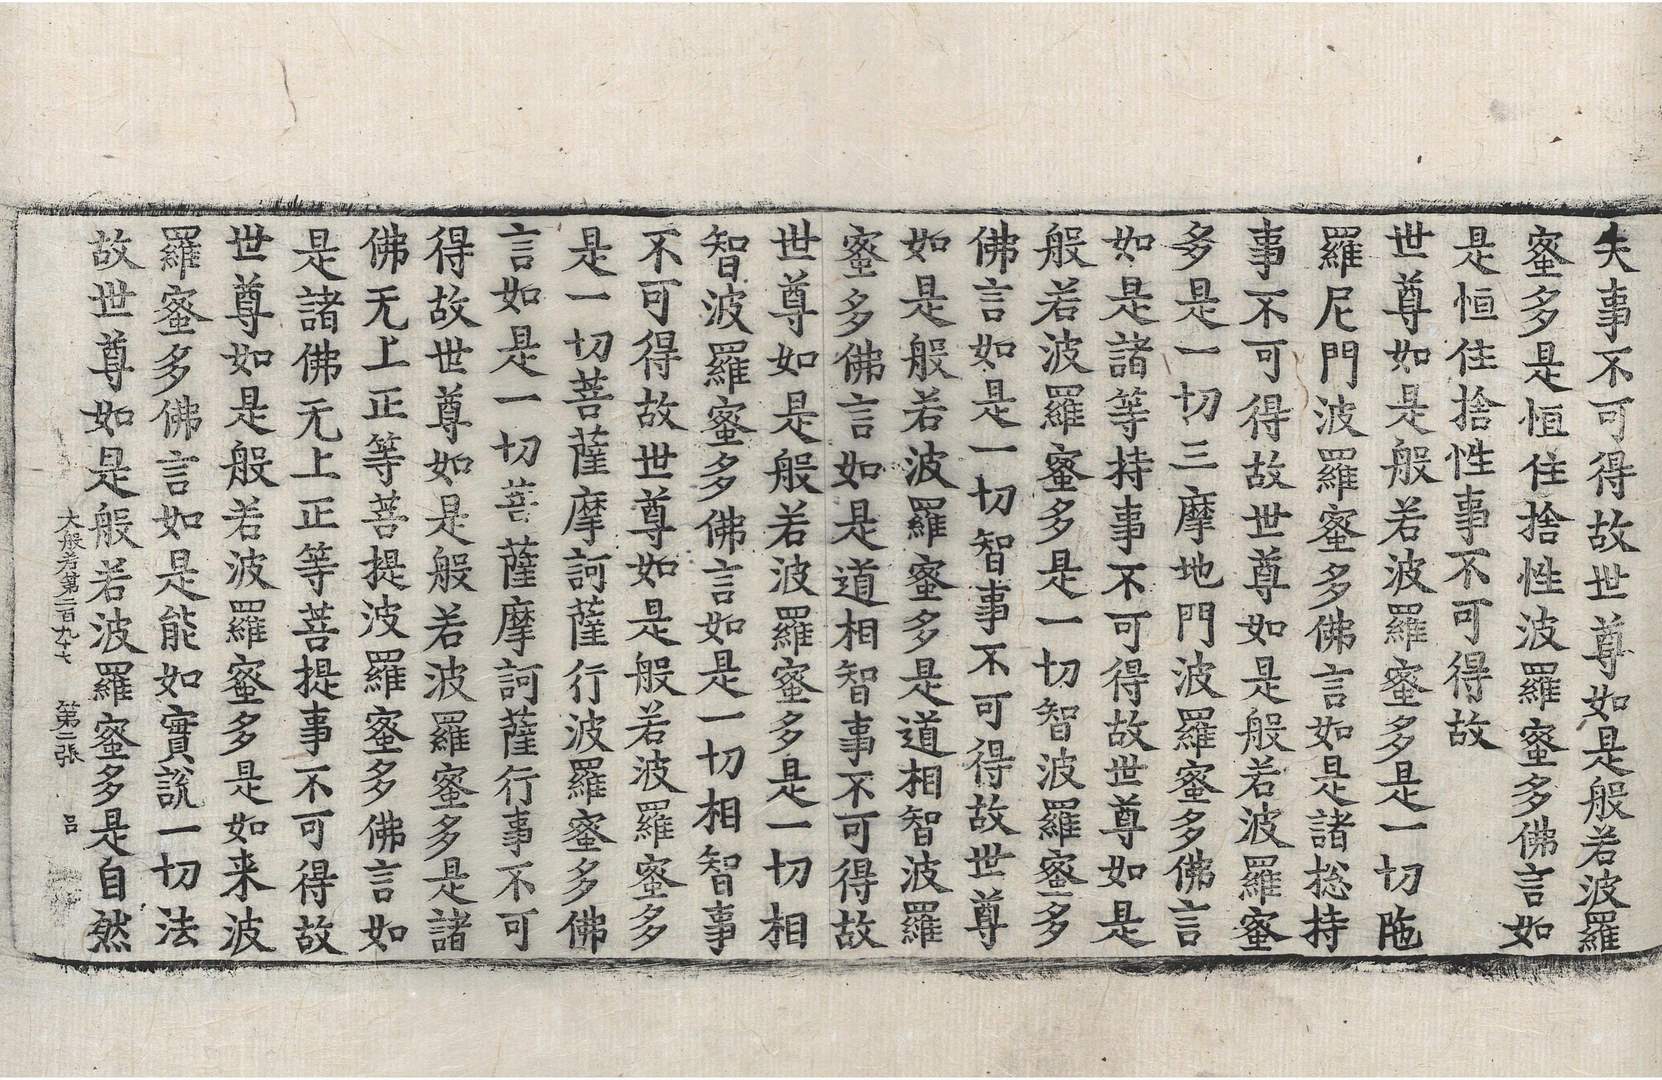 失事不可得故世尊如是般若波羅
蜜多是恒住捨性波羅蜜多佛言如
是恒住捨性事不可得故
世尊如是般若波羅蜜多是一切陁
羅尼門波羅蜜多佛言如是諸惣持
事不可得故世尊如是般若波羅蜜
多是一切三摩地門波羅蜜多佛言
如是諸等持事不可得故世尊如是
般若波羅蜜多是一切智波羅蜜多
佛言如是一切智事不可得故世尊
如是般若波羅蜜多是道相智波羅
蜜多佛言如是道相智事不可得故
世尊如是般若波羅蜜多是一切相
智波羅蜜多佛言如是一切相智事
不可得故世尊如是般若波羅蜜多
是一切菩薩摩訶薩行波羅蜜多佛
言如是一切菩薩摩訶薩行事不可
得故世尊如是般若波羅蜜多是諸
佛无上正等菩提波羅蜜多佛言如
是諸佛无上正等菩提事不可得故
世尊如是般若波羅蜜多是如来波
羅蜜多佛言如是能如實說一切法
故世尊如是般若波羅蜜多是自然
大般若第二百九十七 第二張 吕